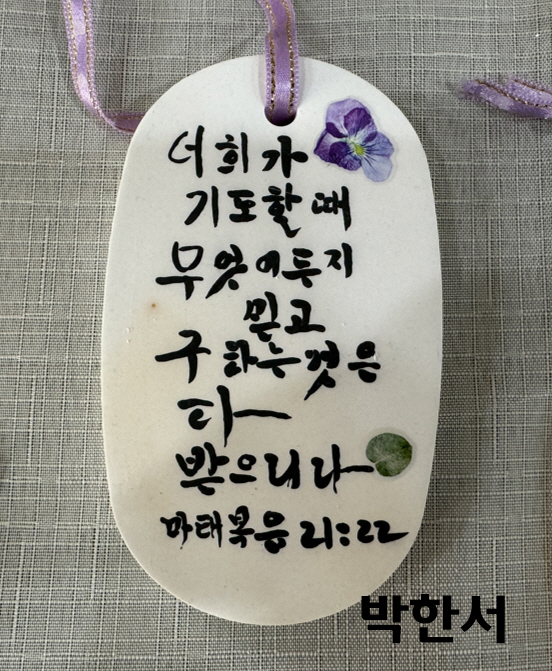 너희가
기도할 때
무엇이든지
믿고
구하는 것은
다
받으리라
마태복음 21:22
박한서